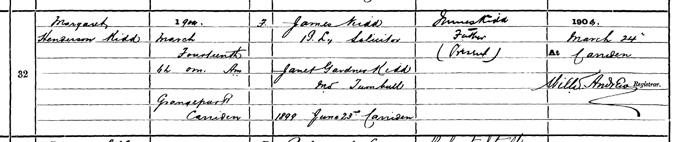 32
Margaret
Henderson Kidd
1900.
March
Fourteenth
6h 0m. AM
Grangepans
Carriden
F.
James Kidd
Solicitor
Janet Gardner Kidd
M.S. Turnbull
1899 June 23d Carriden
James Kidd
Father
(Present)
1900.
March 24th
At
Carriden
Andrew Registrar.